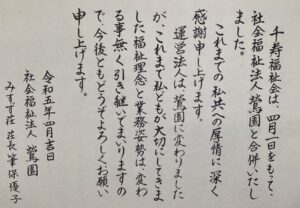 千寿福祉会は、四月一日をもって、
社会福祉法人 鶯園と合併いたし
ました。
これまでの私共への厚情に深く
感謝申し上げます。
運営法人は、鶯園に変わりました
が、これまで私どもが大切にしてきま
した福祉理念と業務姿勢は、変わ
る事無く引き継いでまいりますの
で、今後ともどうぞよろしくお願い
申し上げます。
令和五年四月吉日
社会福祉法人 鶯園
みすず荘 荘長 筆保優子